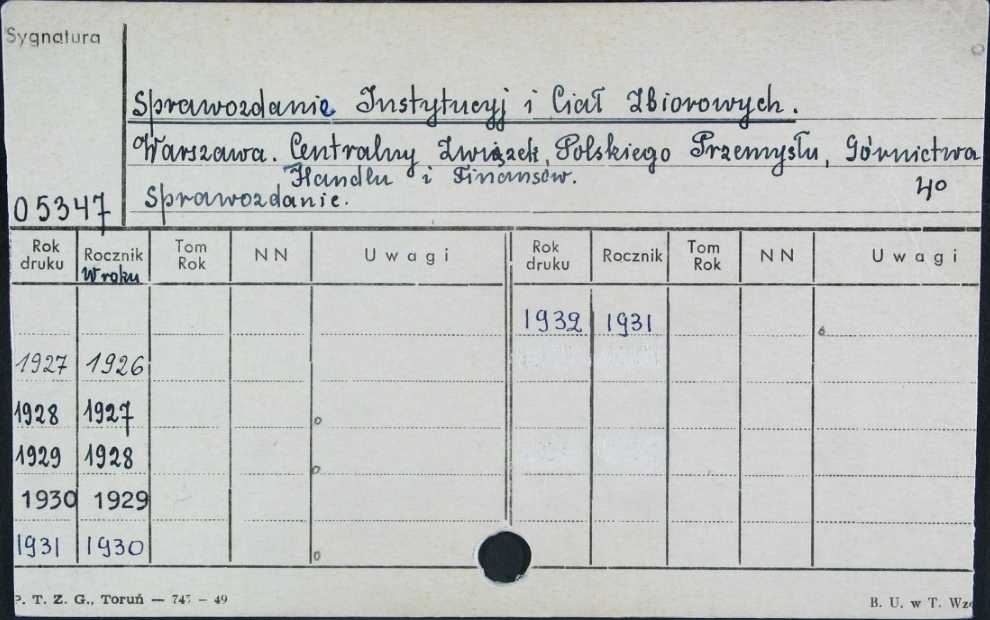 Sygnatura
Sprawozdanie Instytucyj i Ciał Zbiorowych.
Warszawa. Centralny Związek Polskiego Przemysłu, Górnictwa
Handlu i Finansów.
Sprawozdanie. 4o
05347
Rok druku Rocznik W roku Tom Rok NN Uwagi Rok druku Rocznik Tom Rok NN Uwagi
1932 1931
1927 1926
1928 1927
1929 1928
1930 1929
1931 1930
P. T. Z. G., Toruń — 747 – 49 B. U. w T.